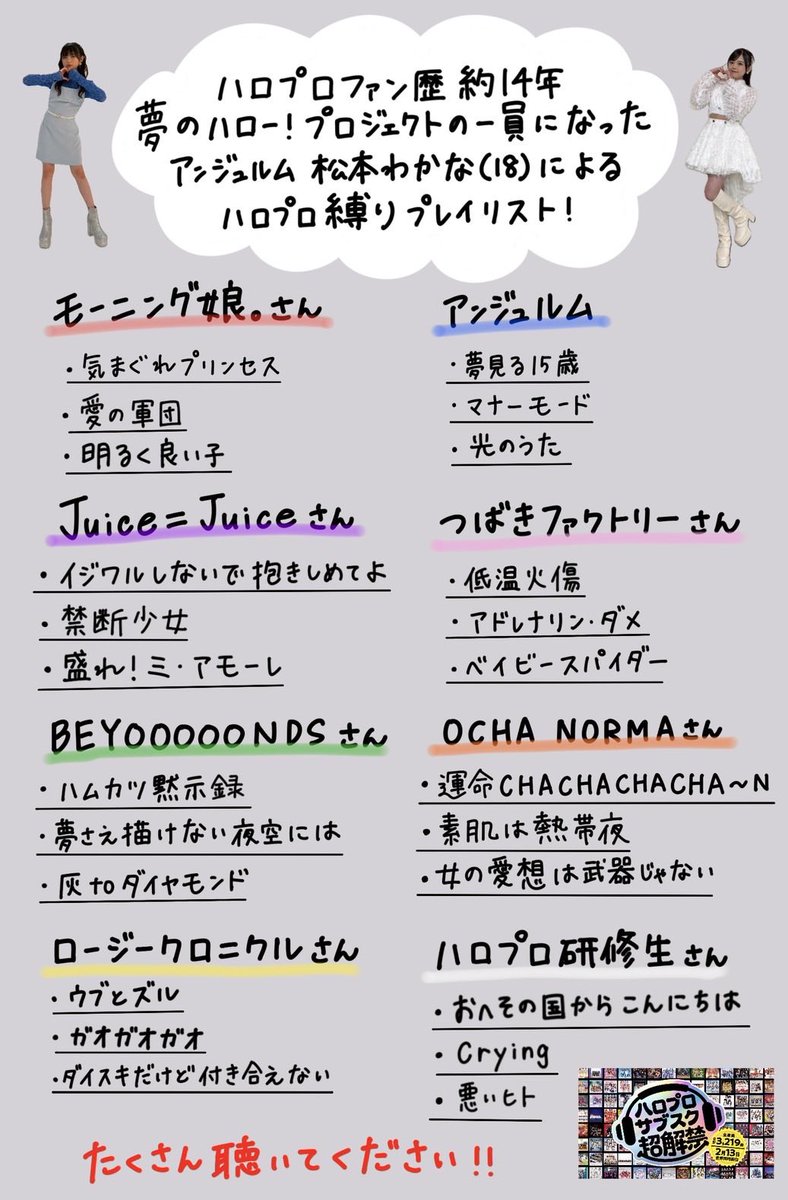 ハロプロファン歴 約14年
夢のハロー！プロジェクトの一員になった
アンジュルム 松本わかな(18)による
ハロプロ縛りプレイリスト！
モーニング娘。さん
・気まぐれプリンセス
・愛の軍団
・明るく良い子
アンジュルム
・夢見る15歳
・マナーモード
・光のうた
Juice=Juiceさん
・イジワルしないで抱きしめてよ
・禁断少女
・盛れ！ミ・アモーレ
つばきファクトリーさん
・低温火傷
・アドレナリン・ダメ
・ベイビースパイダー
BEYOOOOONDSさん
・ハムカツ黙示録
・夢さえ描けない夜空には
・灰toダイヤモンド
OCHA NORMAさん
・運命CHACHACHACHA〜N
・素肌は熱帯夜
・女の愛想は武器じゃない
ロージークロニクルさん
・ウブとズル
・ガオガオガオ
・ダイスキだけど付き合えない
ハロプロ研修生さん
・おへその国からこんにちは
・Crying
・悪いヒト
ハロプロ
サブスク
超解禁
3,219曲
2月13日
たくさん聴いてください!!